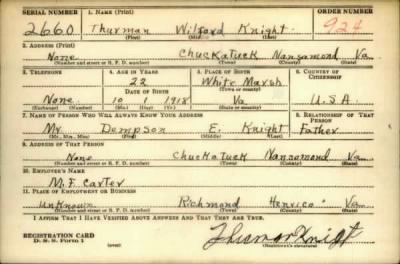 SERIAL NUMBER 1. NAME (Print) ORDER NUMBER
2660 Thurman Wilford Knight 924
(First) (Middle) (Last)
2. ADDRESS (Print)
None Chuckatuck Nansomond Va
(Number and street or R. F. D. number) (Town) (County) (State)
3. TELEPHONE 4. AGE IN YEARS 5. PLACE OF BIRTH 6. COUNTRY OF CITIZENSHIP
22 White Marsh
DATE OF BIRTH (Town or county)
None 10 1 1918 Va U.S.A.
(Exchange) (Number) (Mo.) (Day) (Yr.) (State or country)
7. NAME OF PERSON WHO WILL ALWAYS KNOW YOUR ADDRESS 8. RELATIONSHIP OF THAT PERSON
Mr Dempson E. Knight Father
(Mr., Mrs., Miss) (First) (Middle) (Last)
9. ADDRESS OF THAT PERSON
None Chuckatuck Nansomond Va
(Number and street or R. F. D. number) (Town) (County) (State)
10. EMPLOYER'S NAME
M.F. Carter
11. PLACE OF EMPLOYMENT OR BUSINESS
unknown Richmond Henrico Va
(Number and street or R. F. D. number) (Town) (County) (State)
I AFFIRM THAT I HAVE VERIFIED ABOVE ANSWERS AND THAT THEY ARE TRUE.
REGISTRATION CARD
D. S. S. Form 1 Thurman Knight
(Registrant's signature)